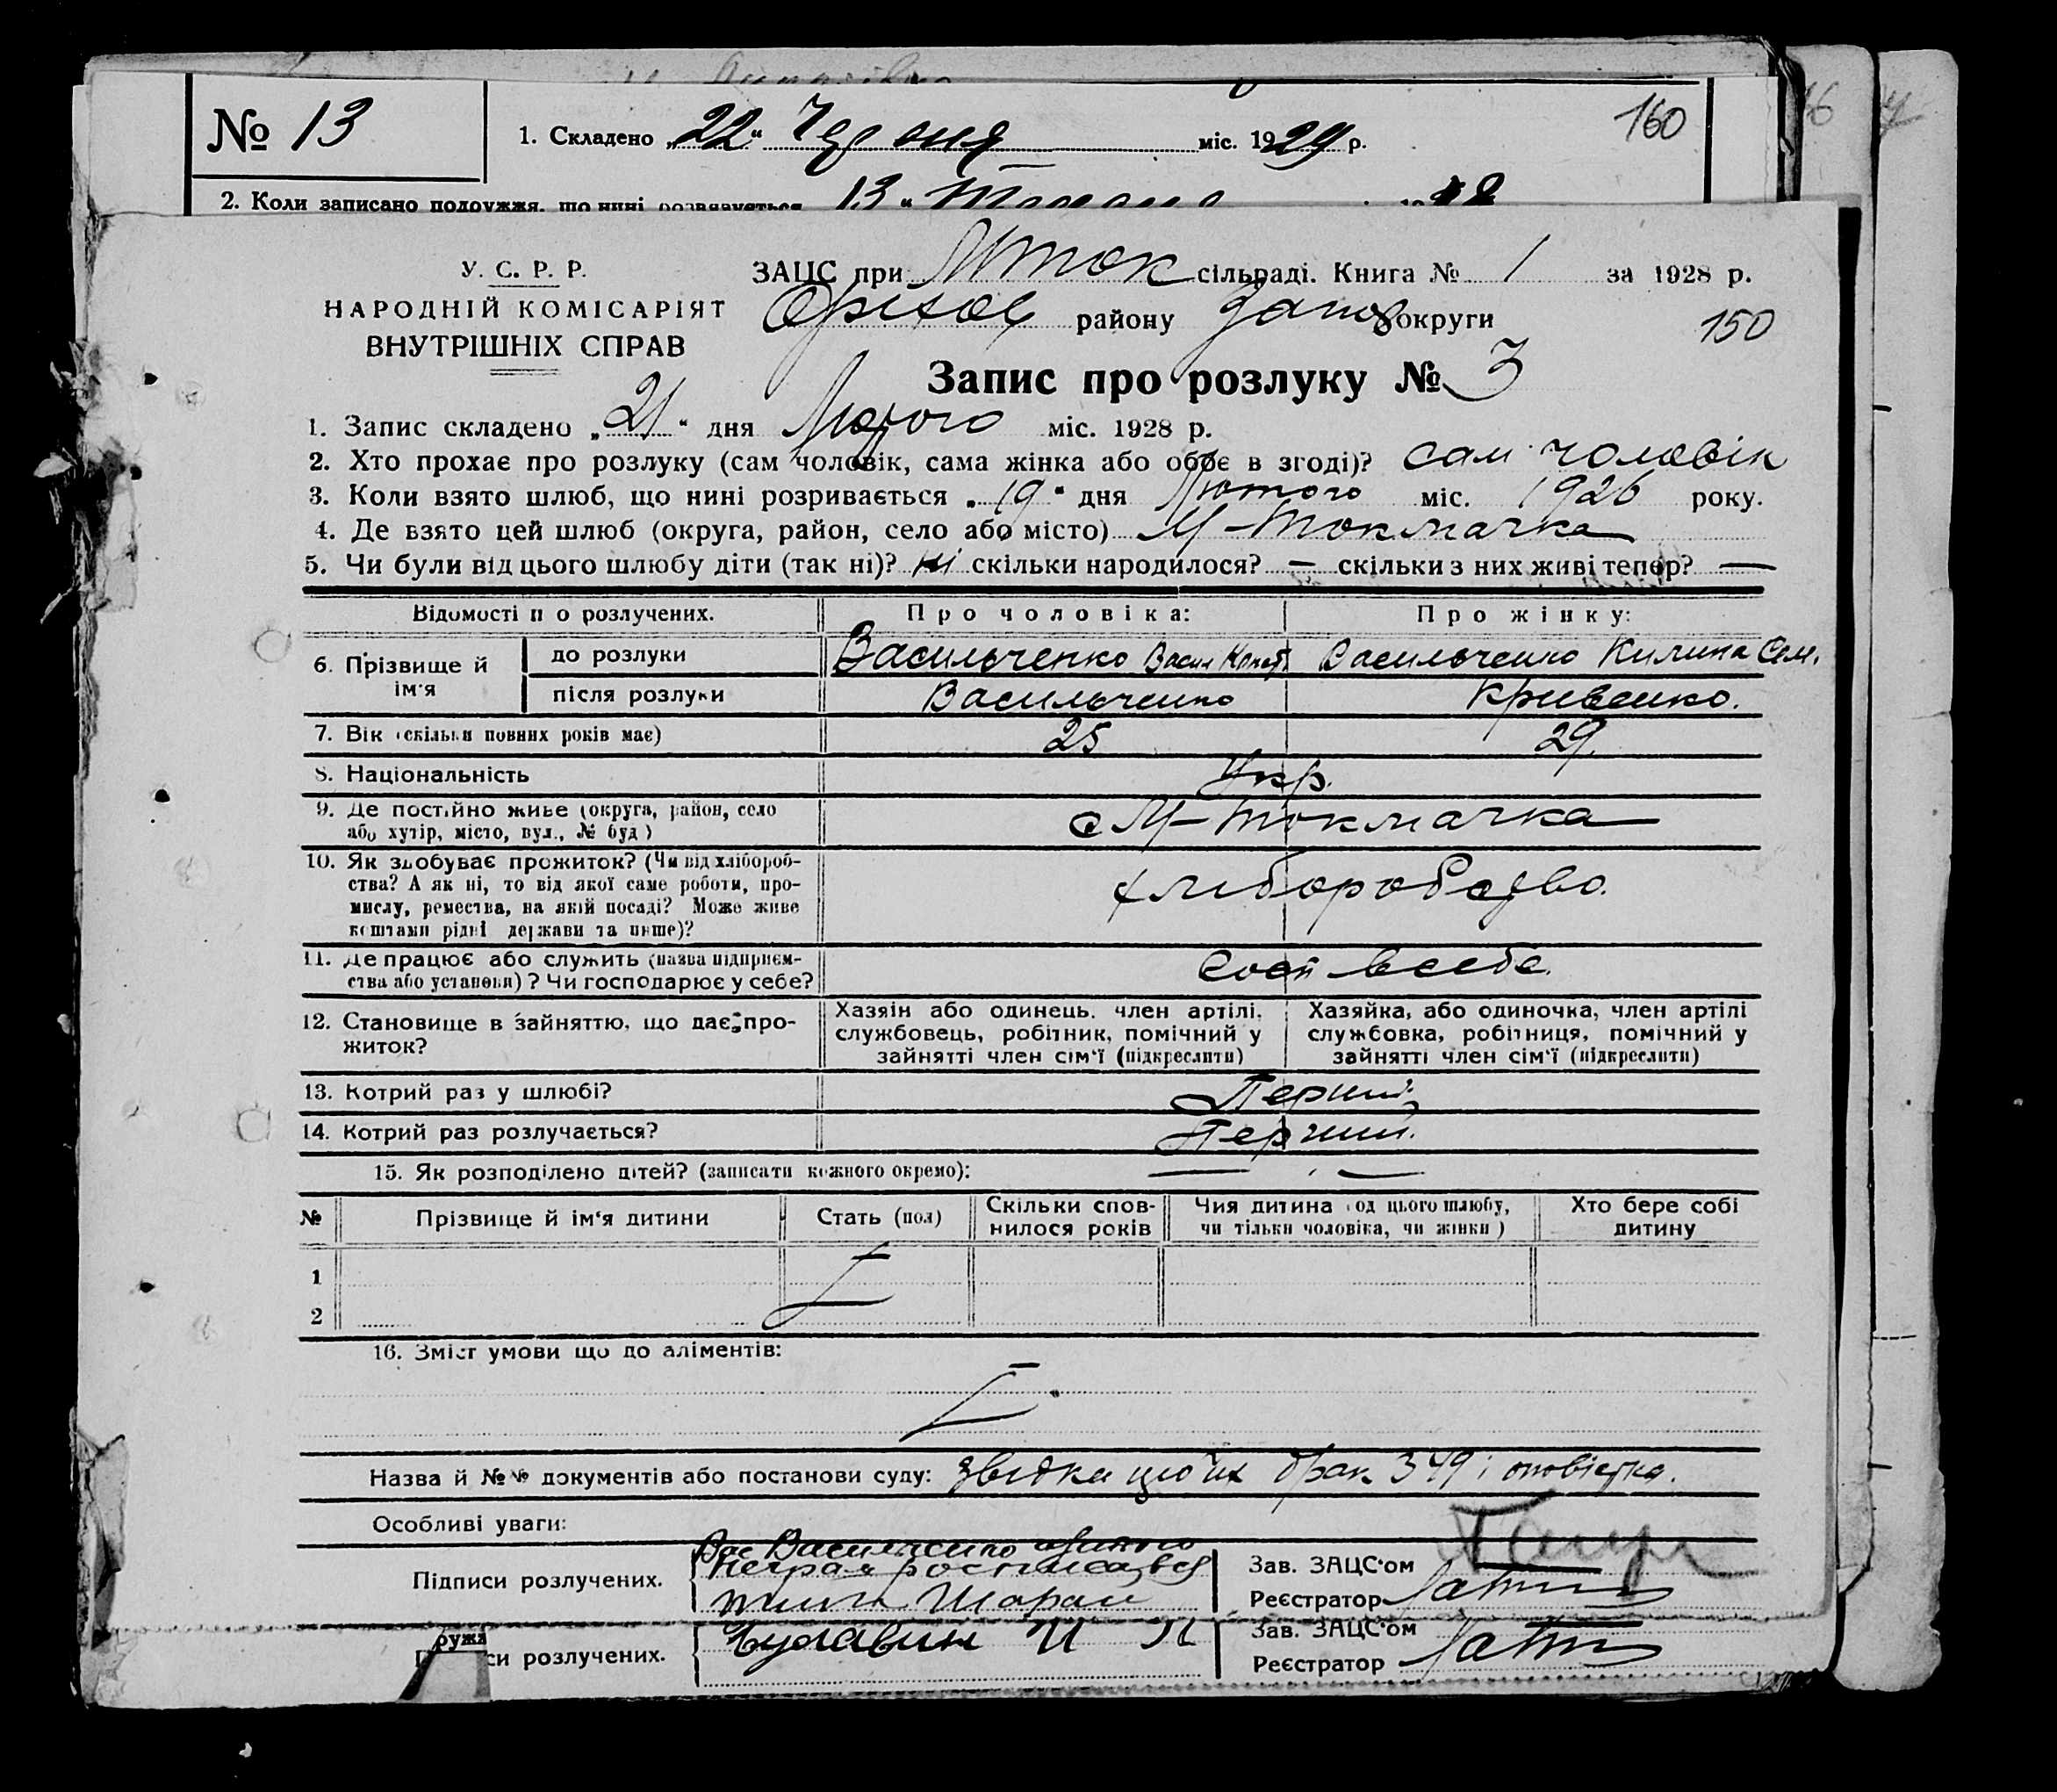 № 13
1. Складено „22“ Червня міс. 1929 р.
160
2. Коли записано подружжя, що нині розвязується 13 “
У. С. Р. Р.
НАРОДНІЙ КОМІСАРІЯТ
ВНУТРІШНІХ СПРАВ
ЗАЦС при Мток сільраді. Книга № 1 за 1928 р.
Оріхов району Запор округи
150
Запис про розлуку № 3
1. Запис складено „21“ дня Лютого міс. 1928 р.
2. Хто прохає про розлуку (сам чоловік, сама жінка або обоє в згоді)? сам чоловік
3. Коли взято шлюб, що нині розривається „19“ дня Лютого міс. 1926 року.
4. Де взято цей шлюб (округа, район, село або місто) М-Токмачка
5. Чи були від цього шлюбу діти (так ні)? ні скільки народилося? — скільки з них живі тепер? —
Відомості п о розлучених.
Про чоловіка:
Про жінку:
6. Прізвище й ім'я
до розлуки
Васильченко Васил
Васильченко Килина Сем.
після розлуки
Васильченко
Кривенко.
7. Вік (скільки повних років має)
25
29
8. Національність
Укр.
9. Де постійно живе (округа, район, село
або хутір, місто, вул., № буд)
с М-Токмачка
10. Як здобуває прожиток? (Чи від хлібороб-
ства? А як ні, то від якої саме роботи, про-
мислу, ремества, на якій посаді? Може живе
коштами рідні держави та инше)?
хліборобство.
11. Де працює або служить (назва підприєм-
ства або установи)? Чи господарює у себе?
в себе.
12. Становище в зайняттю, що дає про-
житок?
Хазяїн або одинець. член артілі,
службовець, робітник, помічний у
зайнятті член сім'ї (підкреслити)
Хазяйка, або одиночка, член артілі
службовка, робітниця, помічний у
зайнятті член сім'ї (підкреслити)
13. Котрий раз у шлюбі?
Перший.
14. Котрий раз розлучається?
Перший.
15. Як розподілено дітей? (записати кожного окремо):
№
Прізвище й ім'я дитини
Стать (пол)
Скільки спов-
нилося років
Чия дитина (од цього шлюбу,
чи тільки чоловіка, чи жінки)
Хто бере собі
дитину
1
2
16. Зміст умови що до аліментів:
Назва й №№ документів або постанови суду: звідка що їх брак 349 і оповістка.
Особливі уваги:
Підписи розлучених.
Вас Васильченко
Неграм росписався
Шаран
Зав. ЗАЦС'ом
Реєстратор
ружж
си розлучених.
Зав. ЗАЦС'ом
Реєстратор